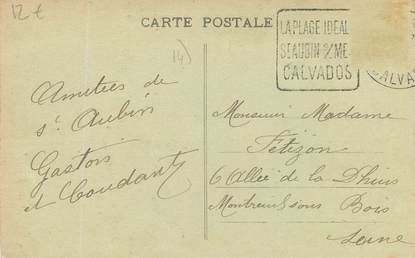 12 €
CARTE POSTALE
14)
LA PLAGE IDEAL
St AUBIN S/ME
CALVADOS
CALVA
Amitiés de
St Aubin
Gaston
et
Monsieur Madame
Fétizon
6 Allée de la Dhuis
Montreuil sous Bois
Seine